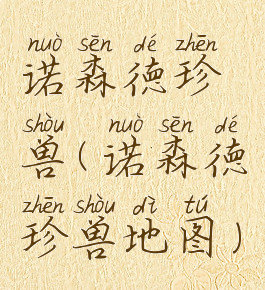 nuò sēn dé zhēn
诺森德珍
shòu nuò sēn dé
兽(诺森德
zhēn shòu dì tú
珍兽地图)